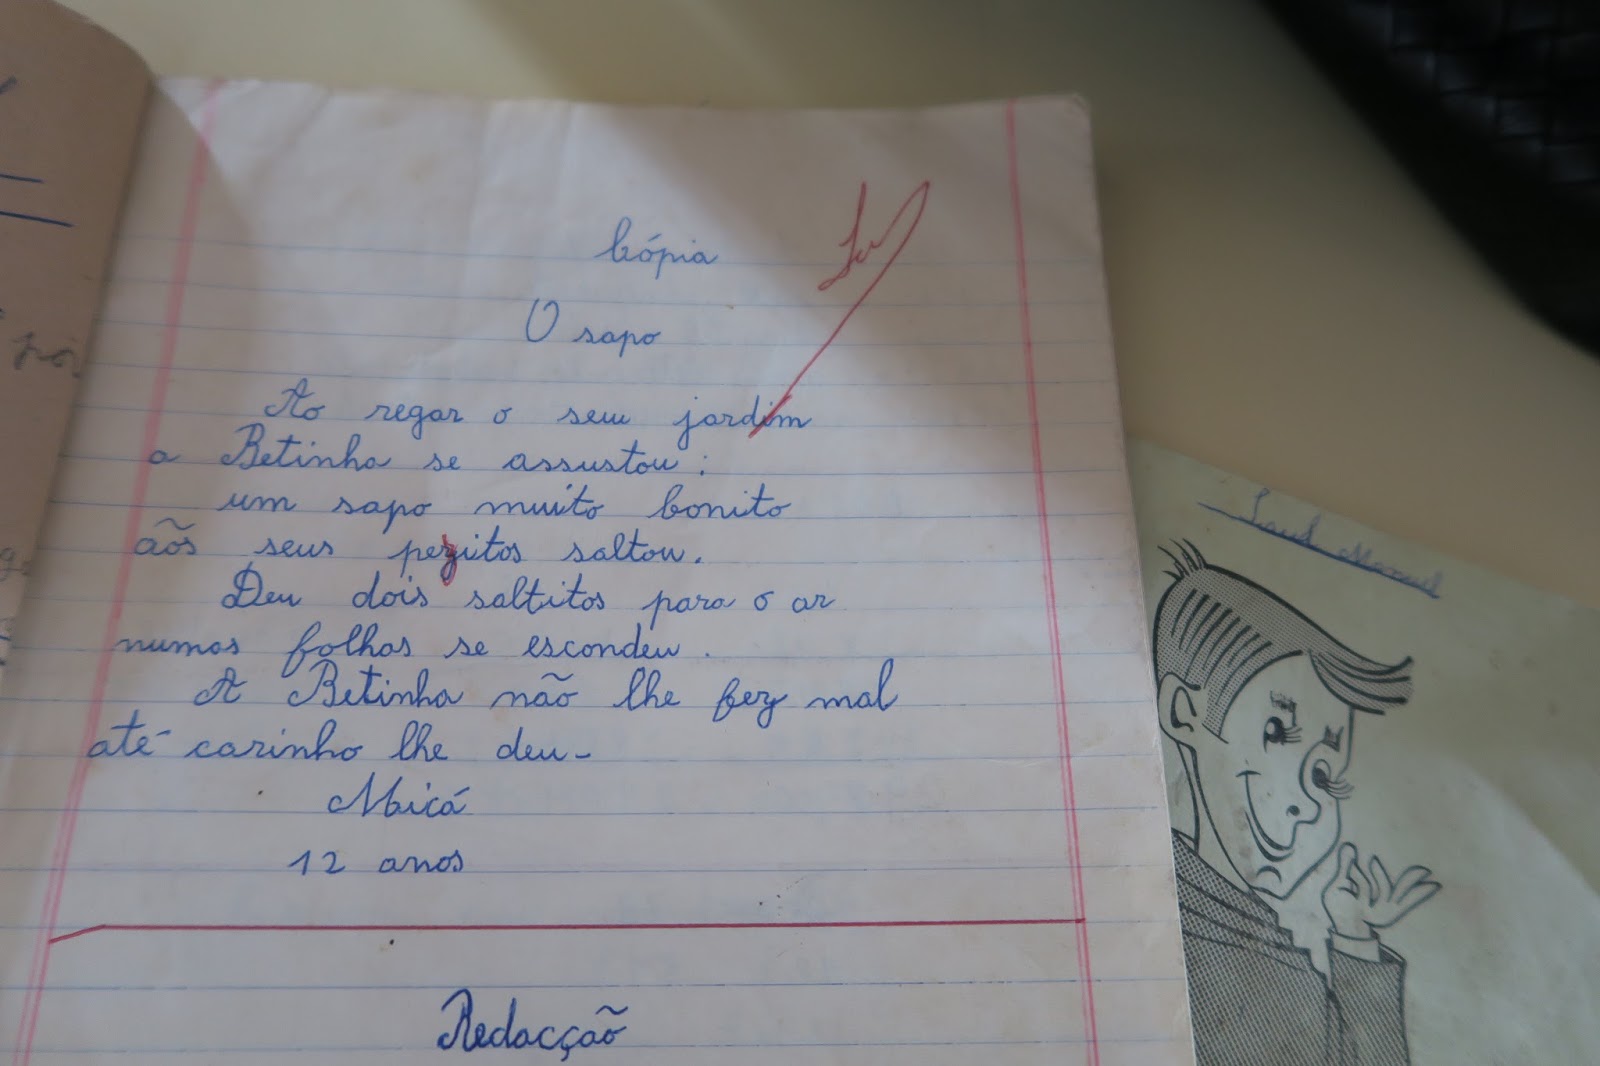 Cópia
O sapo
Ao regar o seu jardim
a Betinha se assustou:
um sapo muito bonito
aõs seus pezitos saltou.
Deu dois saltitos para o ar
numas folhas se escondeu.
A Betinha não lhe fez mal
até carinho lhe deu-
Micá
12 anos
Redacção
Manuel